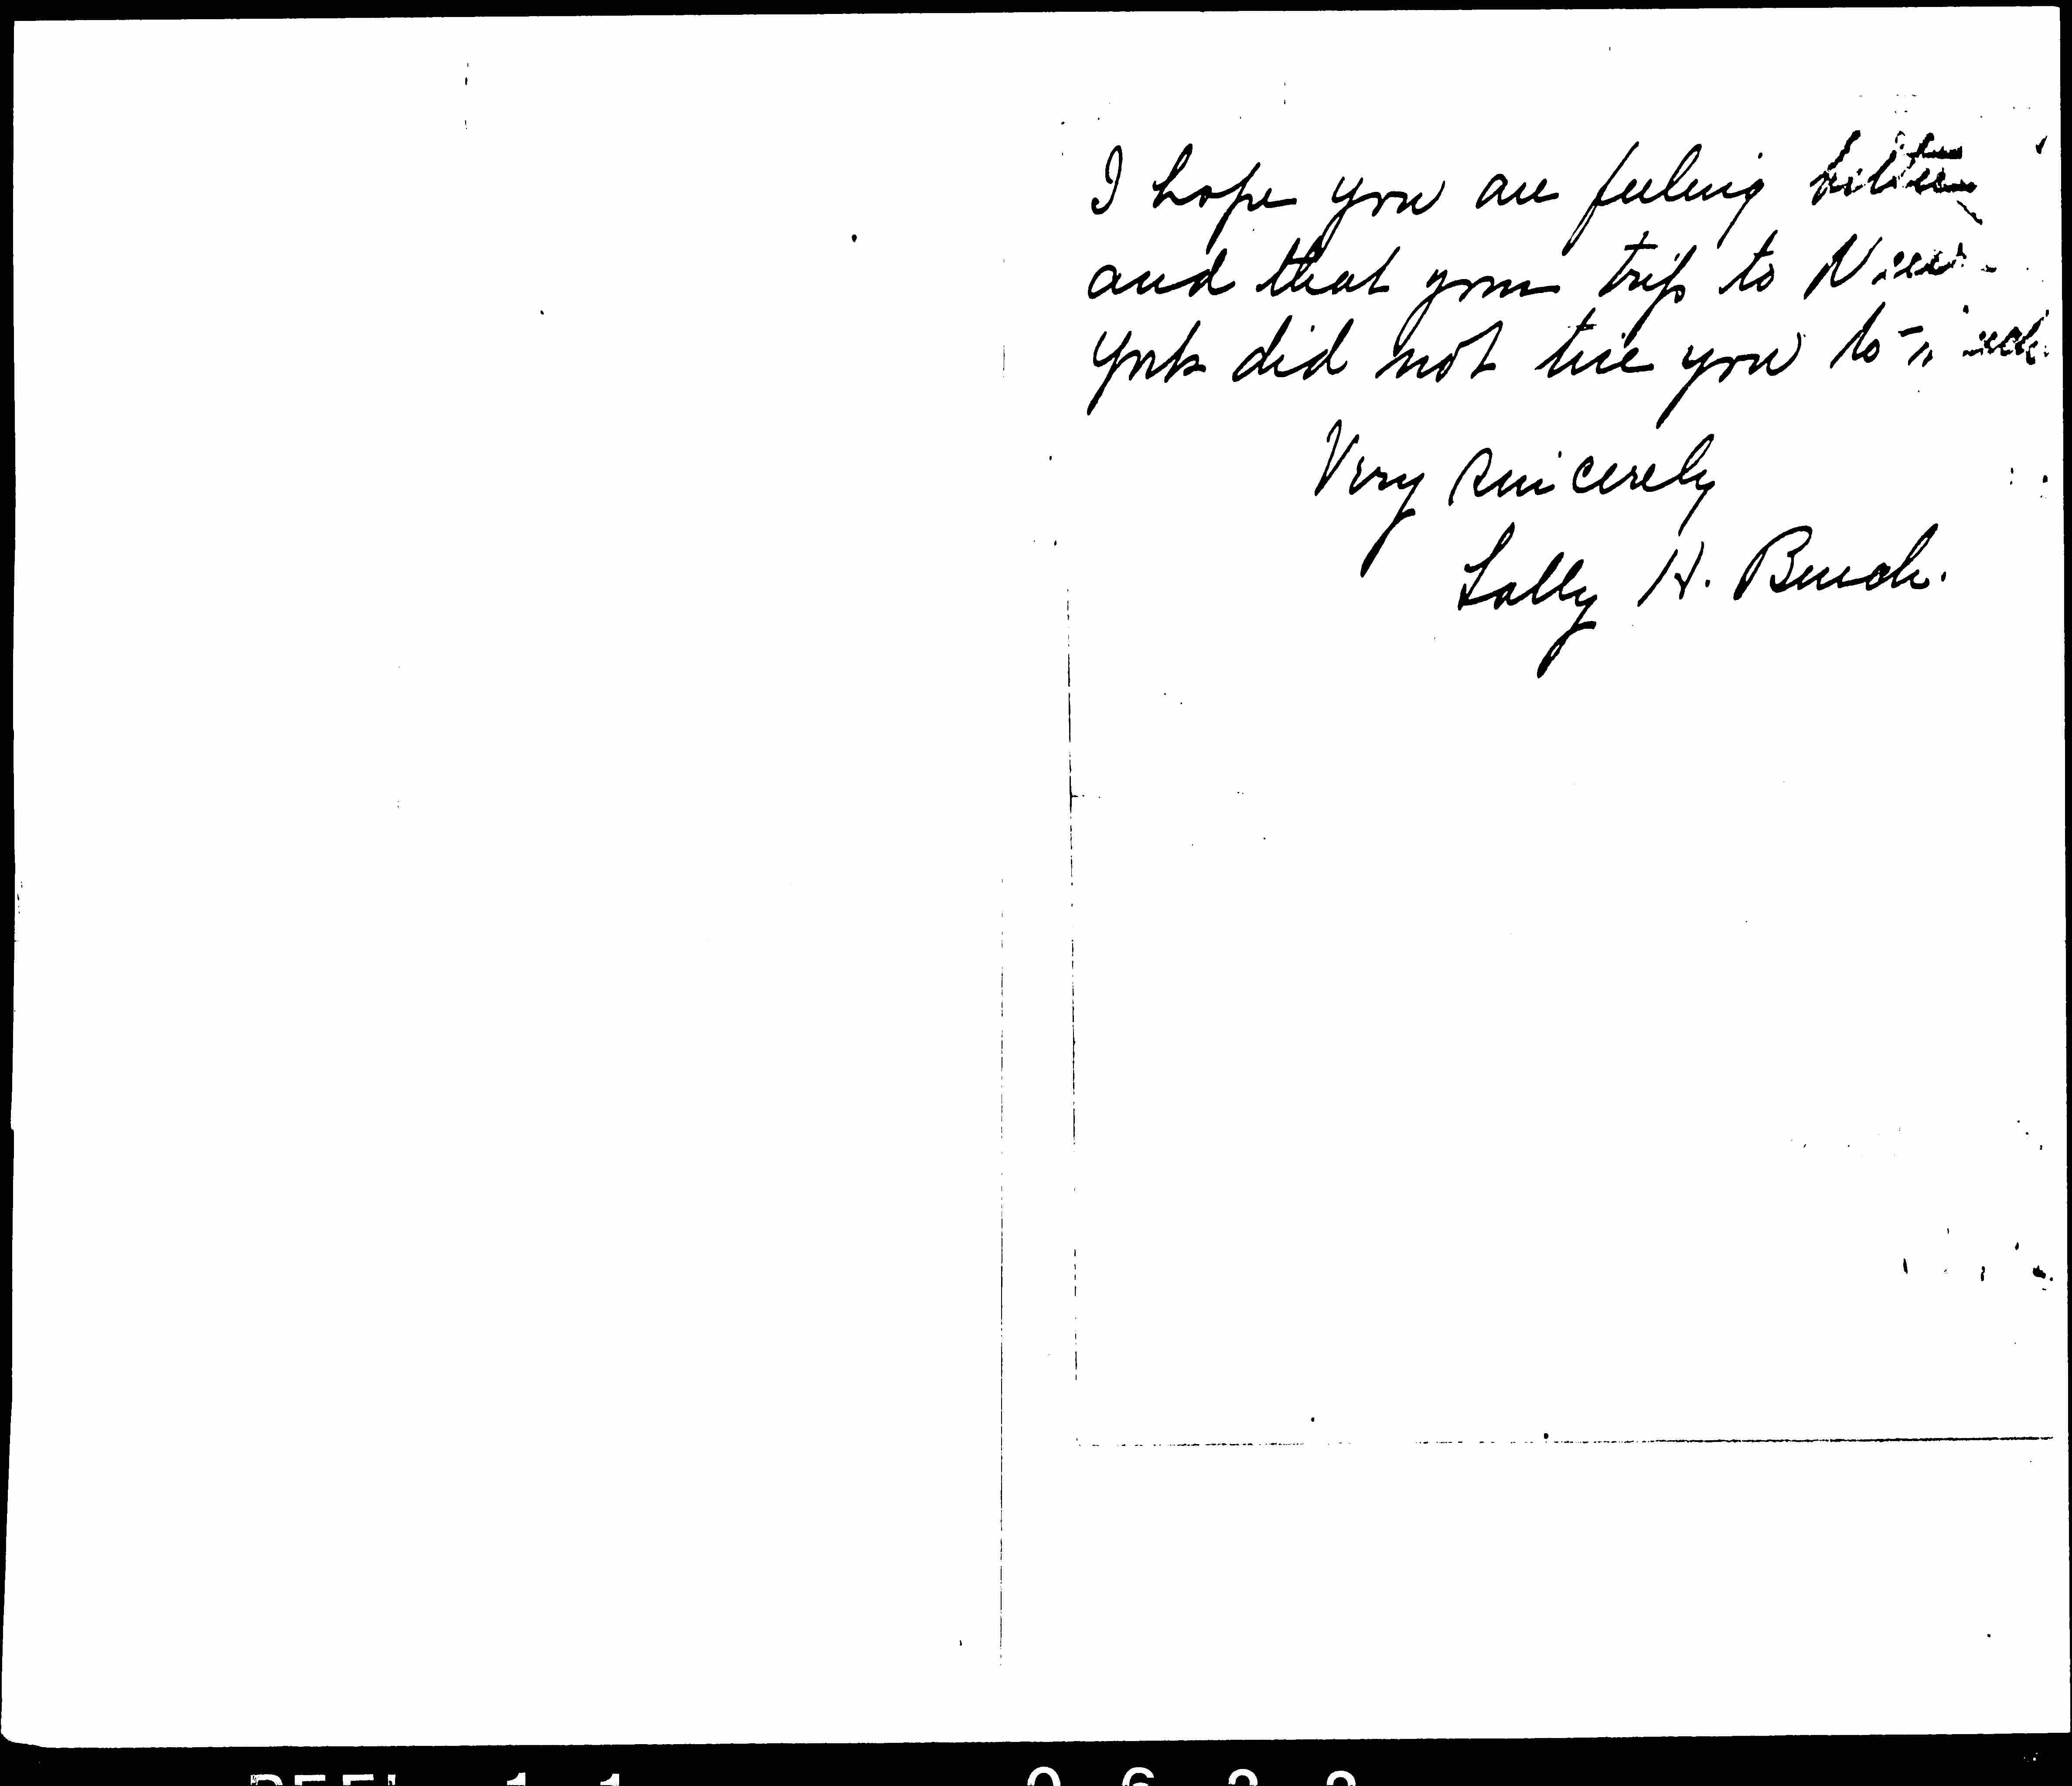 I hope you are feeling better
and that your trip to New
York did not tire you too
Very Sincerely
Sally H.
REEL 11